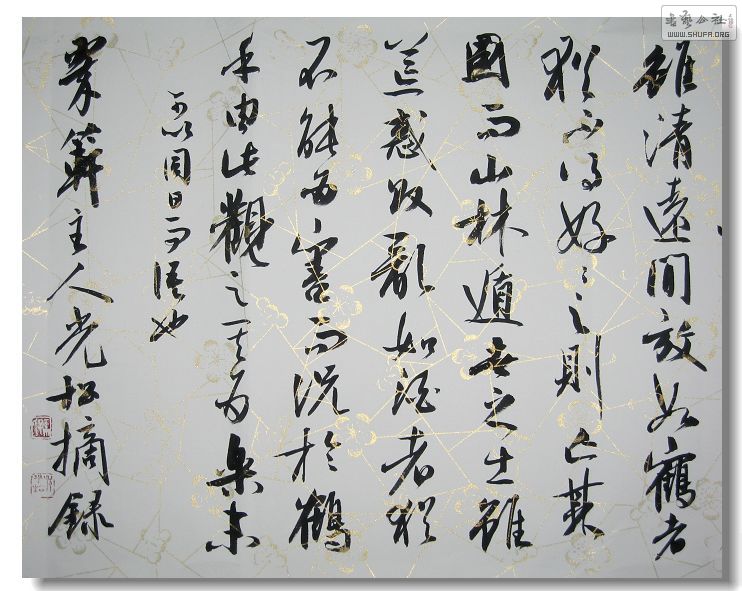 雖清遠間放如鶴者
猶不得好〻之則亡其
國而山林遁世之士雖
荒惑敗亂如酒者猶
不能為害而況於鶴
乎由此觀之其為樂未
可以同日而語也
主人光松摘録
書藝公社
WWW.SHUFA.ORG